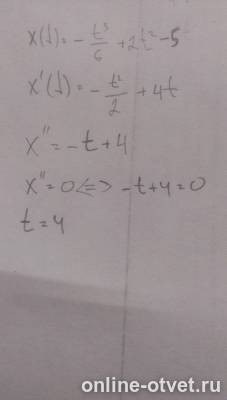 x(t) = -t³/6 + 2t² - 5
x'(t) = -t²/2 + 4t
x'' = -t + 4
x'' = 0 <=> -t + 4 = 0
t = 4
online-otvet.ru